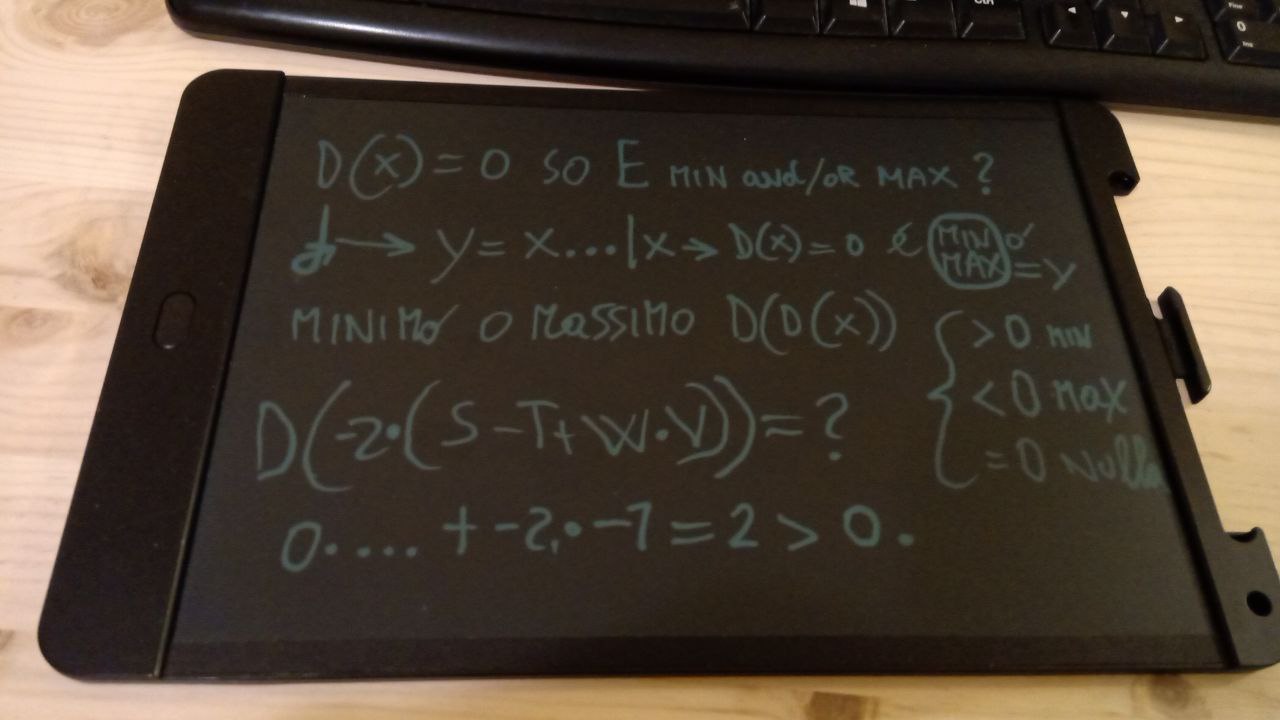 D(x) = 0 SO E MIN and/OR MAX ?
→ y = x...|x → D(x) = 0 è MIN o MAX = y
MINIMO O MASSIMO D(D(x)) { > 0 MIN
< 0 MAX
= 0 Nulla
D(-2•(S - T + W•V)) = ?
0•.... + -2•-1 = 2 > 0.
Ctrl
0
Ins